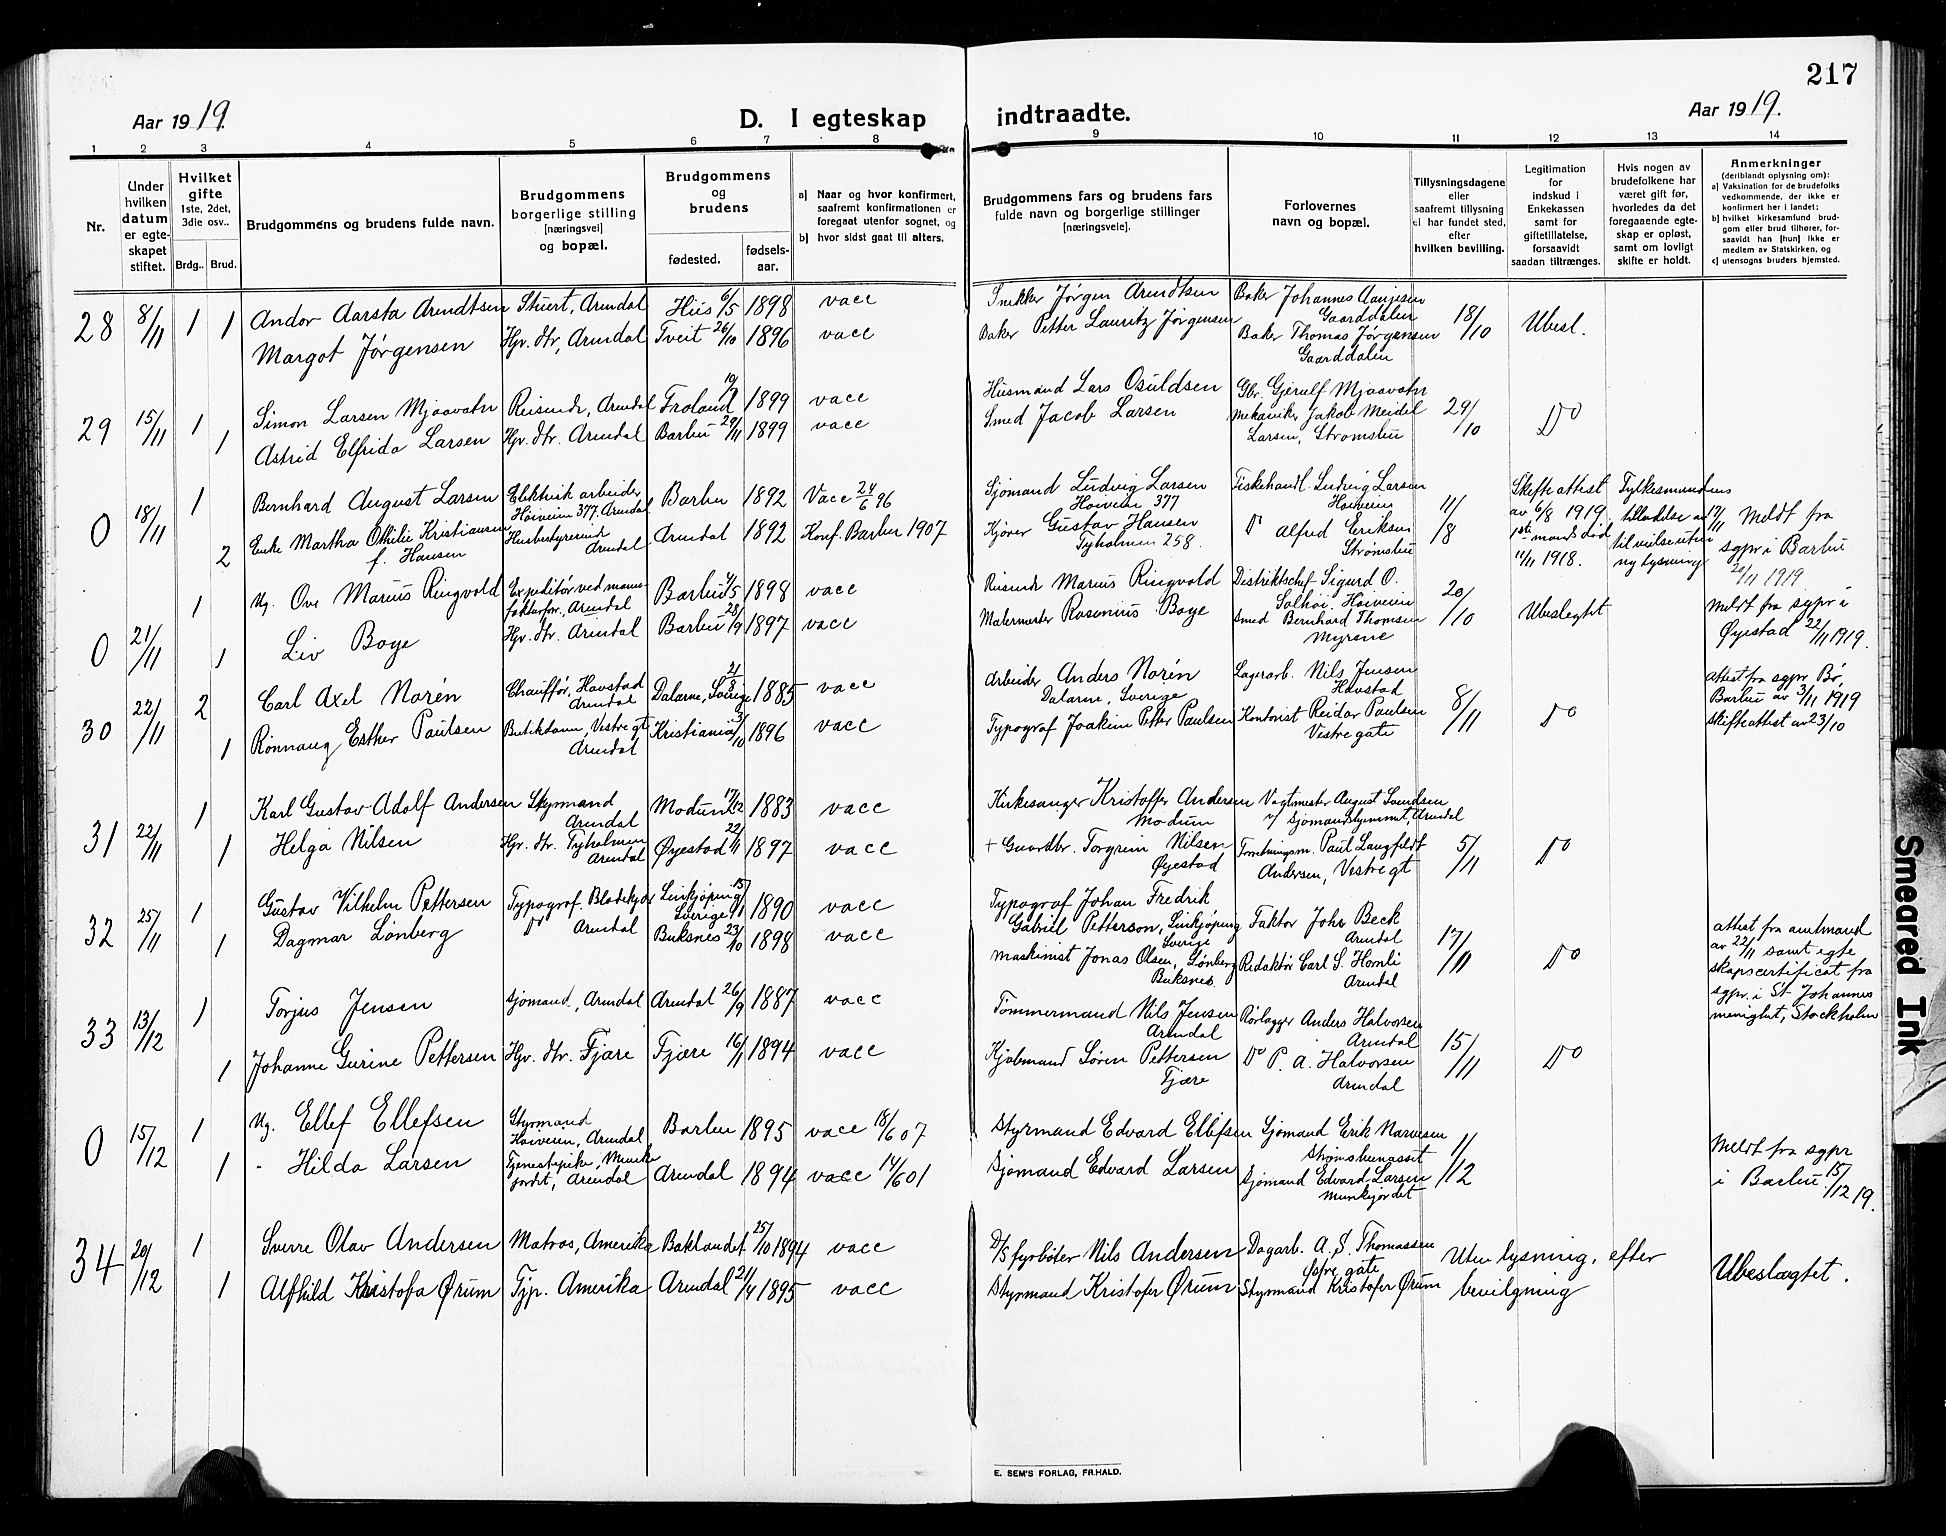 217
Aar 1919.
D. I egteskap indtraadte.
Aar 1919.
1 2 3 4 5 6 7 8 9 10 11 12 13 14
Nr.
Under hvilken datum er egteskapet stiftet.
Hvilket gifte 1ste, 2det, 3die osv..
Brdg.. Brud.
Brudgommens og brudens fulde navn.
Brudgommens borgerlige stilling [næringsvei] og bopæl.
Brudgommens og brudens
fødested.
fødselsaar.
a) Naar og hvor konfirmert, saafremt konfirmationen er foregaat utenfor sognet, og
b) hvor sidst gaat til alters.
Brudgommens fars og brudens fars fulde navn og borgerlige stillinger [næringsveie].
Forlovernes navn og bopæl.
Tillysningsdagene eller saafremt tillysning ei har fundet sted, efter hvilken bevilling.
Legitimation for indskud i Enkekassen samt for giftetillatelse, forsaavidt saadan tiltrænges.
Hvis nogen av brudefolkene har været gift før, hvorledes da det foregaaende egteskap er opløst, samt om lovligt skifte er holdt.
Anmerkninger (deriblandt oplysning om):
a) Vaksination for de brudefolks vedkommende, der ikke er konfirmert her i landet;
b) hvilket kirkesamfund brudgom eller brud tilhører, forsaavidt han [hun] ikke er medlem av Statskirken, og
c) utensogns bruders hjemsted.
28 8/11 1 1 Andor Aarsta Arndtsen Stuert, Arendal Hus 6/5 1898 vacc Snekker Jørgen Arndtsen Baker Johannes Gaarddalen 18/10 Ubesl.
Margot Jørgensen Hjv. dtr, Arendal Tveit 26/10 1896 vacc Baker Petter Lauritz Jørgensen Baker Thomas Jørgensen Gaarddalen
29 15/11 1 Simon Larsen Mjaavatn Reisende, Arendal Froland 1899 vacc Husmand Lars Osuldsen Gbr. Gjerulf Mjaavatn 29/10 Do
1 Astrid Elfrida Larsen Hjv. dtr. Arendal Barbu 29/11 1899 vacc Smed Jacob Larsen Mekaniker Jakob Meidel Larsen, Strømsbu
0 18/11 1 Bernhard August Larsen Elektrisk arbeider Høiveien 377. Arendal Barbu 1892 Vacc 24/6 96 Sjømand Ludvig Larsen Høiveien 377 Fiskehandl. Ludvig Larsen Høiveien 11/8 Skifteattest av 6/8 1919, 1ste mand død 11/11 1918. Fylkesmandens tilladelse av 17/11 til vielse uten ny lysning Meldt fra sgpr i Barbu 20/11 1919
2 Enke Martha Othilie Kristiansen f. Hansen Husbestyrerinde Arendal Arendal 1892 Konf. Barbu 1907 Kjører Gustav Hansen Tyholmen 258. Do Alfred Eriksen Strømsbu
0 21/11 1 Ug. Ove Marius Ringvold Expeditør ved manufakturfor. Arendal Barbu 1/5 1898 vacc Reisende Marius Ringvold Distriktschef Sigurd O. Solhøi. Høiveien 20/10 Ubeslegtet Meldt fra sgpr i Øyestad 22/11 1919.
1 Liv Boye Hjv. dtr. Arendal Barbu 28/9 1897 vacc Malermester Rosenius Boye Smed Bernhard Thomsen Myrene
30 22/11 2 Carl Axel Norén Chauffør, Havstad Arendal Dalarne, Sverige 21/8 1885 vacc Arbeider Anders Norén Dalarne, Sverige Lagerarb. Nils Jensen Havstad 8/11 Do Attest fra sgpr Bø, Barbu av 3/11 1919 skifteattest av 23/10
1 Rønnaug Esther Paulsen Butikdame, Vestre gt Arendal Kristiania 3/10 1896 vacc Typograf Joakim Petter Paulsen Kontorist Reidar Paulsen Vestre gate
31 22/11 1 Karl Gustav Adolf Andersen Styrmand Arendal Modum 17/12 1883 vacc Kirkesanger Kristoffer Andersen Modum Vagtmester August Svendsen v/ Sjømandshjemmet, Arendal 5/11 Do
1 Helga Nilsen Hjv. dtr. Tyholmen Arendal Øyestad 22/11 1897 vacc + Gaardbr. Torgrim Nilsen Øyestad Forretningsm. Paul Langfeldt Andersen, Vestre gt
32 25/11 1 Gustav Vilhelm Pettersen Typograf. Blødekjær Do Arendal Linkjøping Sverige 1890 vacc Typograf Johan Fredrik Gabriel Petterson, Linkjøping Sverige Faktor Johs Beck Arendal 17/11 Do attest fra amtmand av 22/11 samt egteskapscertificat fra sgpr. i St Johannes menighet, Stockholm
1 Dagmar Lønberg Buksnes 23/10 1898 vacc Maskinist Jonas Olsen Lønberg Buksnes. Redaktør Carl S. Hornli Arendal
33 13/12 1 Torjus Jensen Sjømand, Arendal Arendal 26/9 1887 vacc Tømmermand Nils Jensen Arendal Rørlægger Anders Halvorsen Arendal 15/11 Do
1 Johanne Gurine Pettersen Hjv. dtr. Fjære Fjære 16/11 1894 vacc Kjøbmand Søren Pettersen Fjære Do P. A. Halvorsen Arendal
0 15/12 1 Ug. Ellef Ellefsen Styrmand Høiveien, Arendal Barbu 1895 vacc 18/6 07 Styrmand Edvard Ellefsen Sjømand Erik Narvesen Strømsbuneset 1/12 Meldt fra sgpr i Barbu 15/12 19.
1 - Hilda Larsen Tjenestepike, Munkejordet, Arendal Arendal 1894 vacc 14/6 01 Sjømand Edvard Larsen Sjømand Edvard Larsen Munkejordet
34 20/12 1 Sverre Olav Andersen Matros, Amerika Baklandet 25/10 1894 vacc D/S fyrbøter Nils Andersen Dagarb. A. S. Thomassen gate Uten lysning, efter bevilgning Ubeslægtet.
1 Alfhild Kristofa Ørum Tjp. Amerika Arendal 21/4 1895 vacc Styrmand Kristofer Ørum Styrmand Kristofer Ørum
E. SEM'S FORLAG, FR.HALD.
Smeared Ink